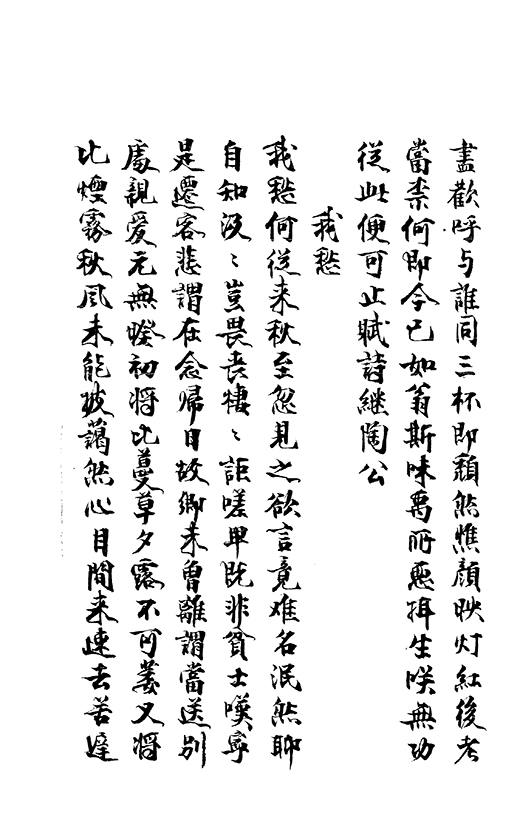 盡歡呼与誰同三杯即頹然憔顏映灯紅後老
當柰何即今已如翁斯味禹所惡損生咲無功
從此便可止賦詩継陶公
我愁
我愁何從来秋至忽見之欲言竟难名泯然聊
自知汲〻豈畏老棲〻詎嗟卑既非貧士嘆寧
是遷客悲謂在念帰日故鄉未曾離謂當送别
處親愛元無暌初将比蔓草夕露不可萎又将
比煙霧秋風未能披藹然心目間来速去苦遲